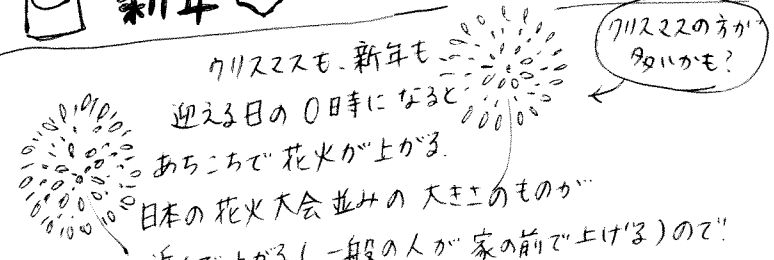 新年
クリスマスの方が
多いかも？
クリスマスも、新年も
迎える日の0時になると
あちこちで花火が上がる.
日本の花火大会並みの大きさのものが
上がる(一般の人が家の前で上げる)ので!